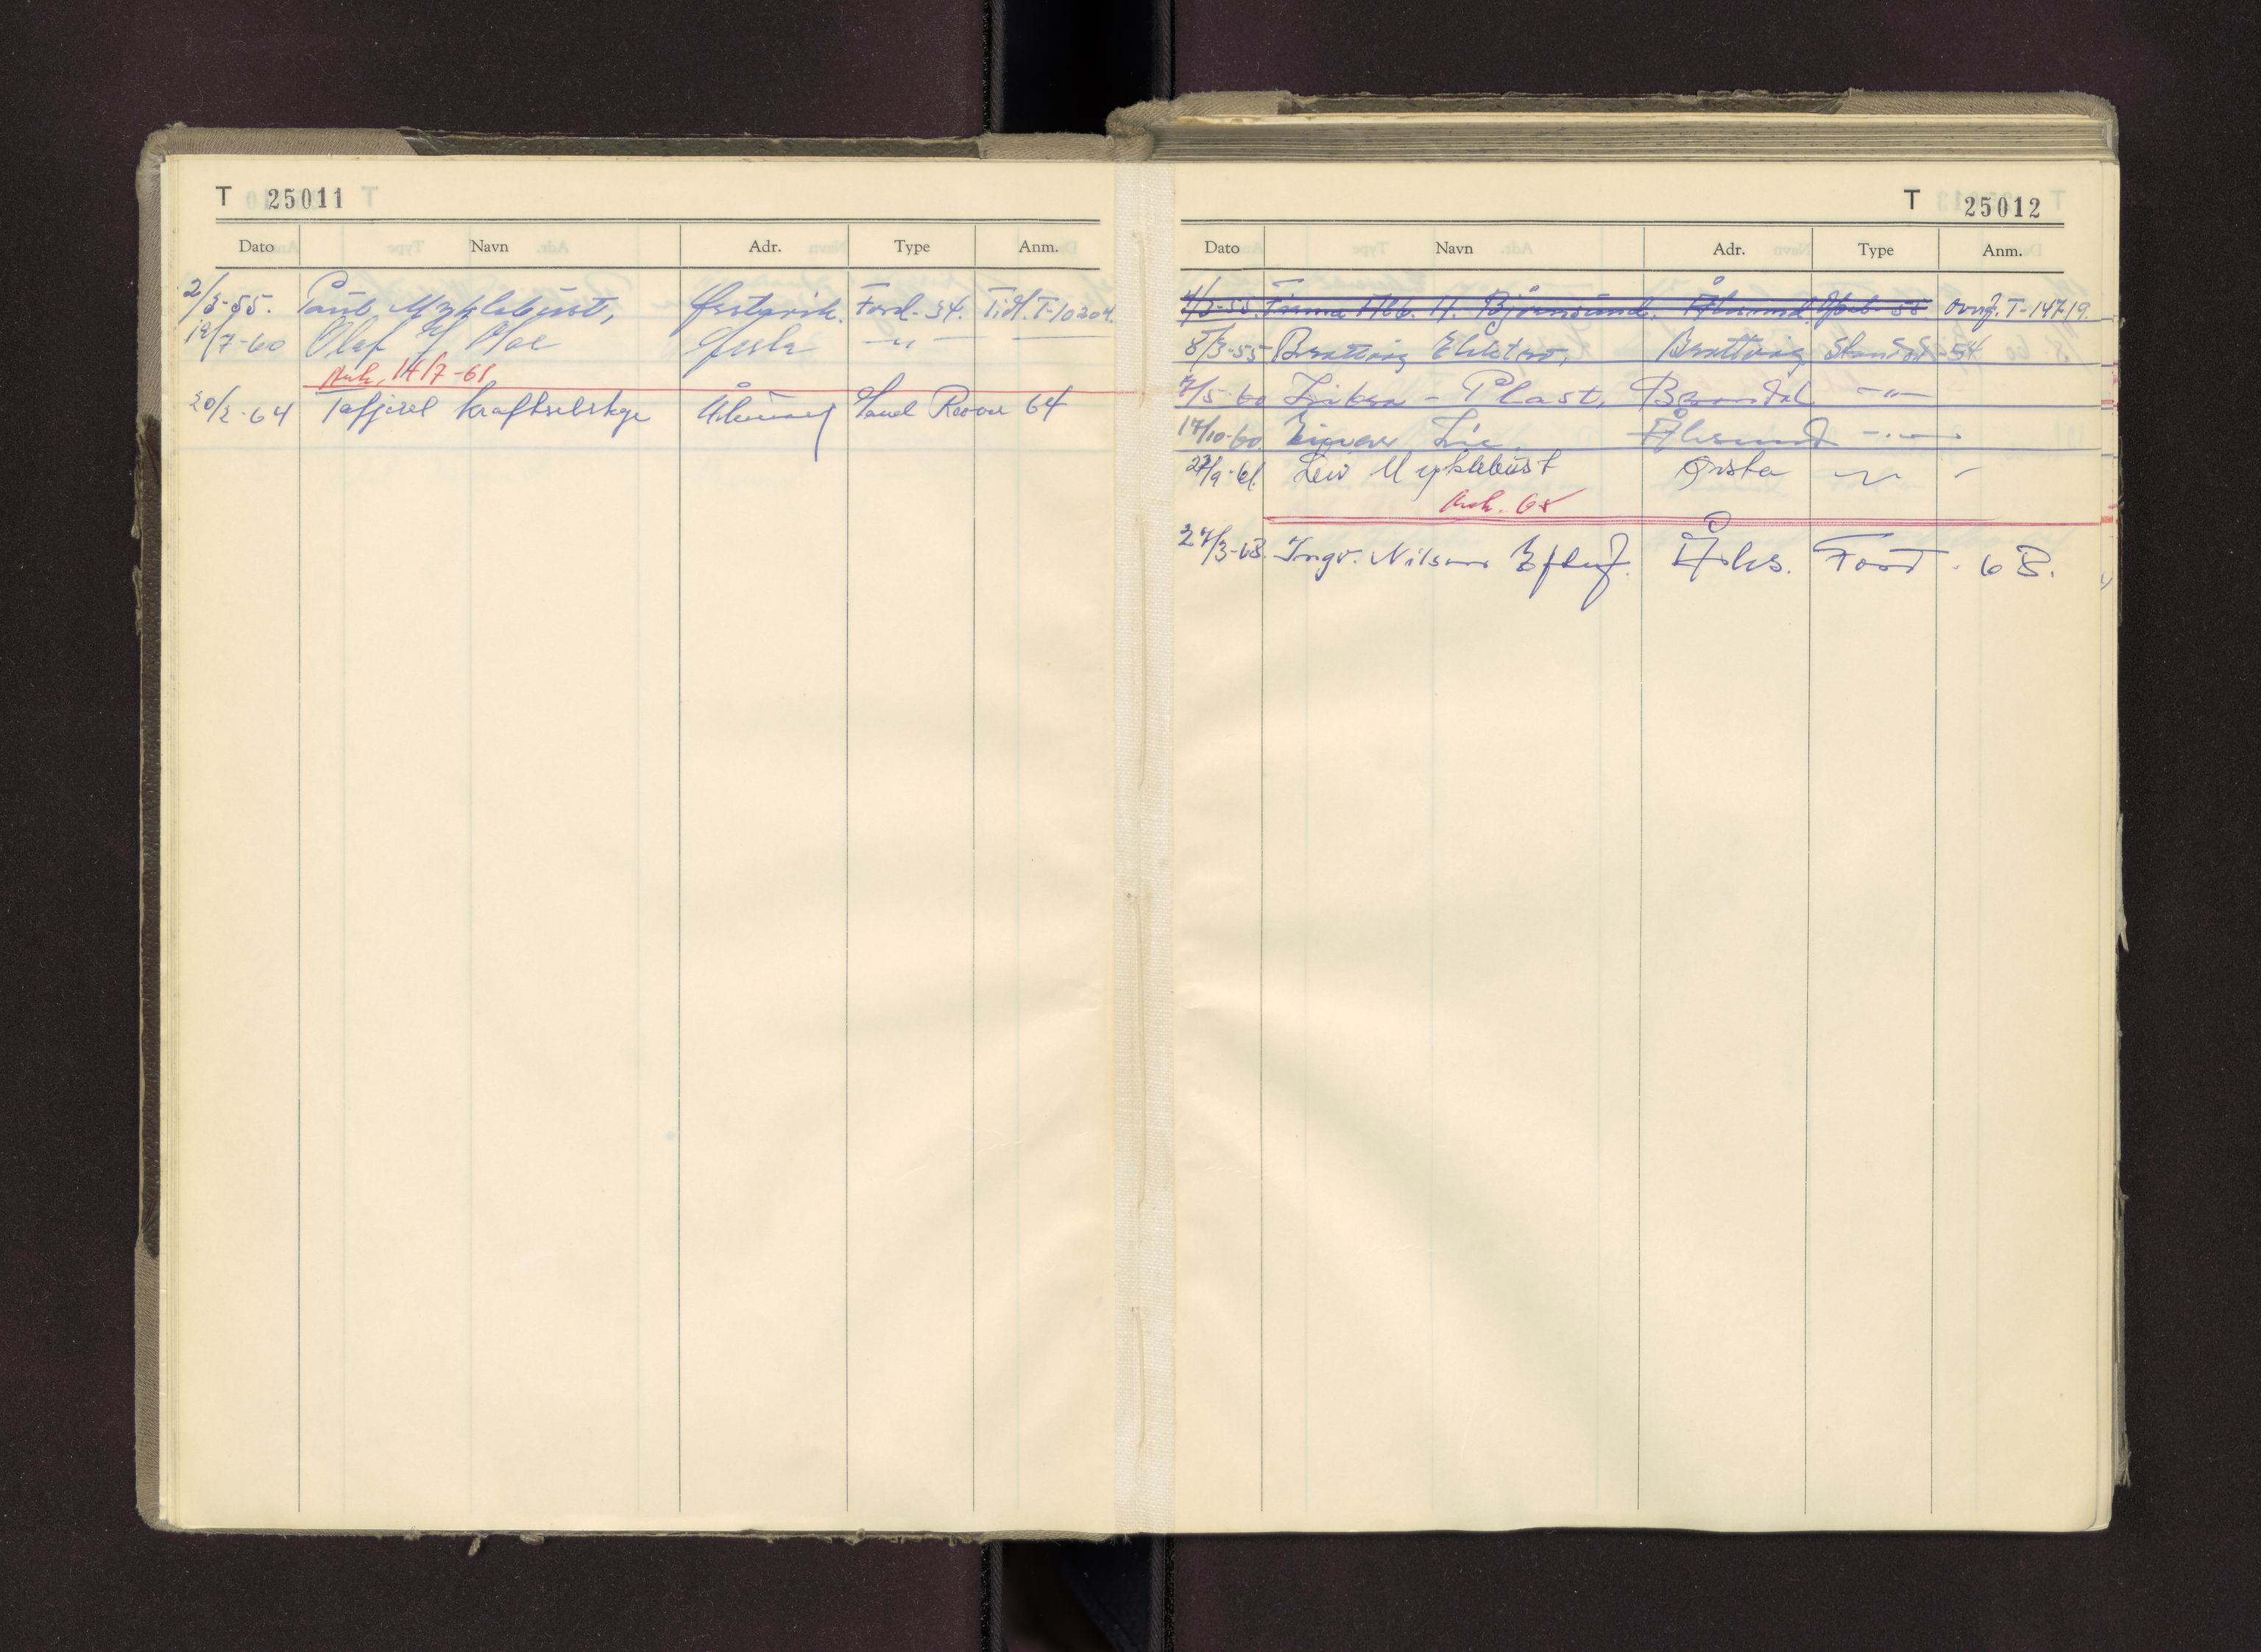 T 25011
Dato Navn Adr. Type Anm.
2/3-55. Paul Myklebust, Ørstavik. Ford-34. Tidl. T-10204.
19/7-60 Olaf Moe -"-
Avh. 14/7-61
20/2-64 Tafjord Kraftselskap Ålesund Land Rover 64
T 25012
Dato Navn Adr. Type Anm.
4/3-55. Firma Alb. H. Bjørnsund. Ålesund. Opel-55 Overf. T-14719.
8/3-55 Brattvåg Elektro, Brattvåg Standard-54
7/5-60 - Plast, Brandal -"-
17/10-60. Lie Ålesund -"-
27/9-61. Leiv Myklebust Ørsta -"-
Avh. 65
27/3-68. Ingv. Nilsens Eftf. Åles. Ford. 68.